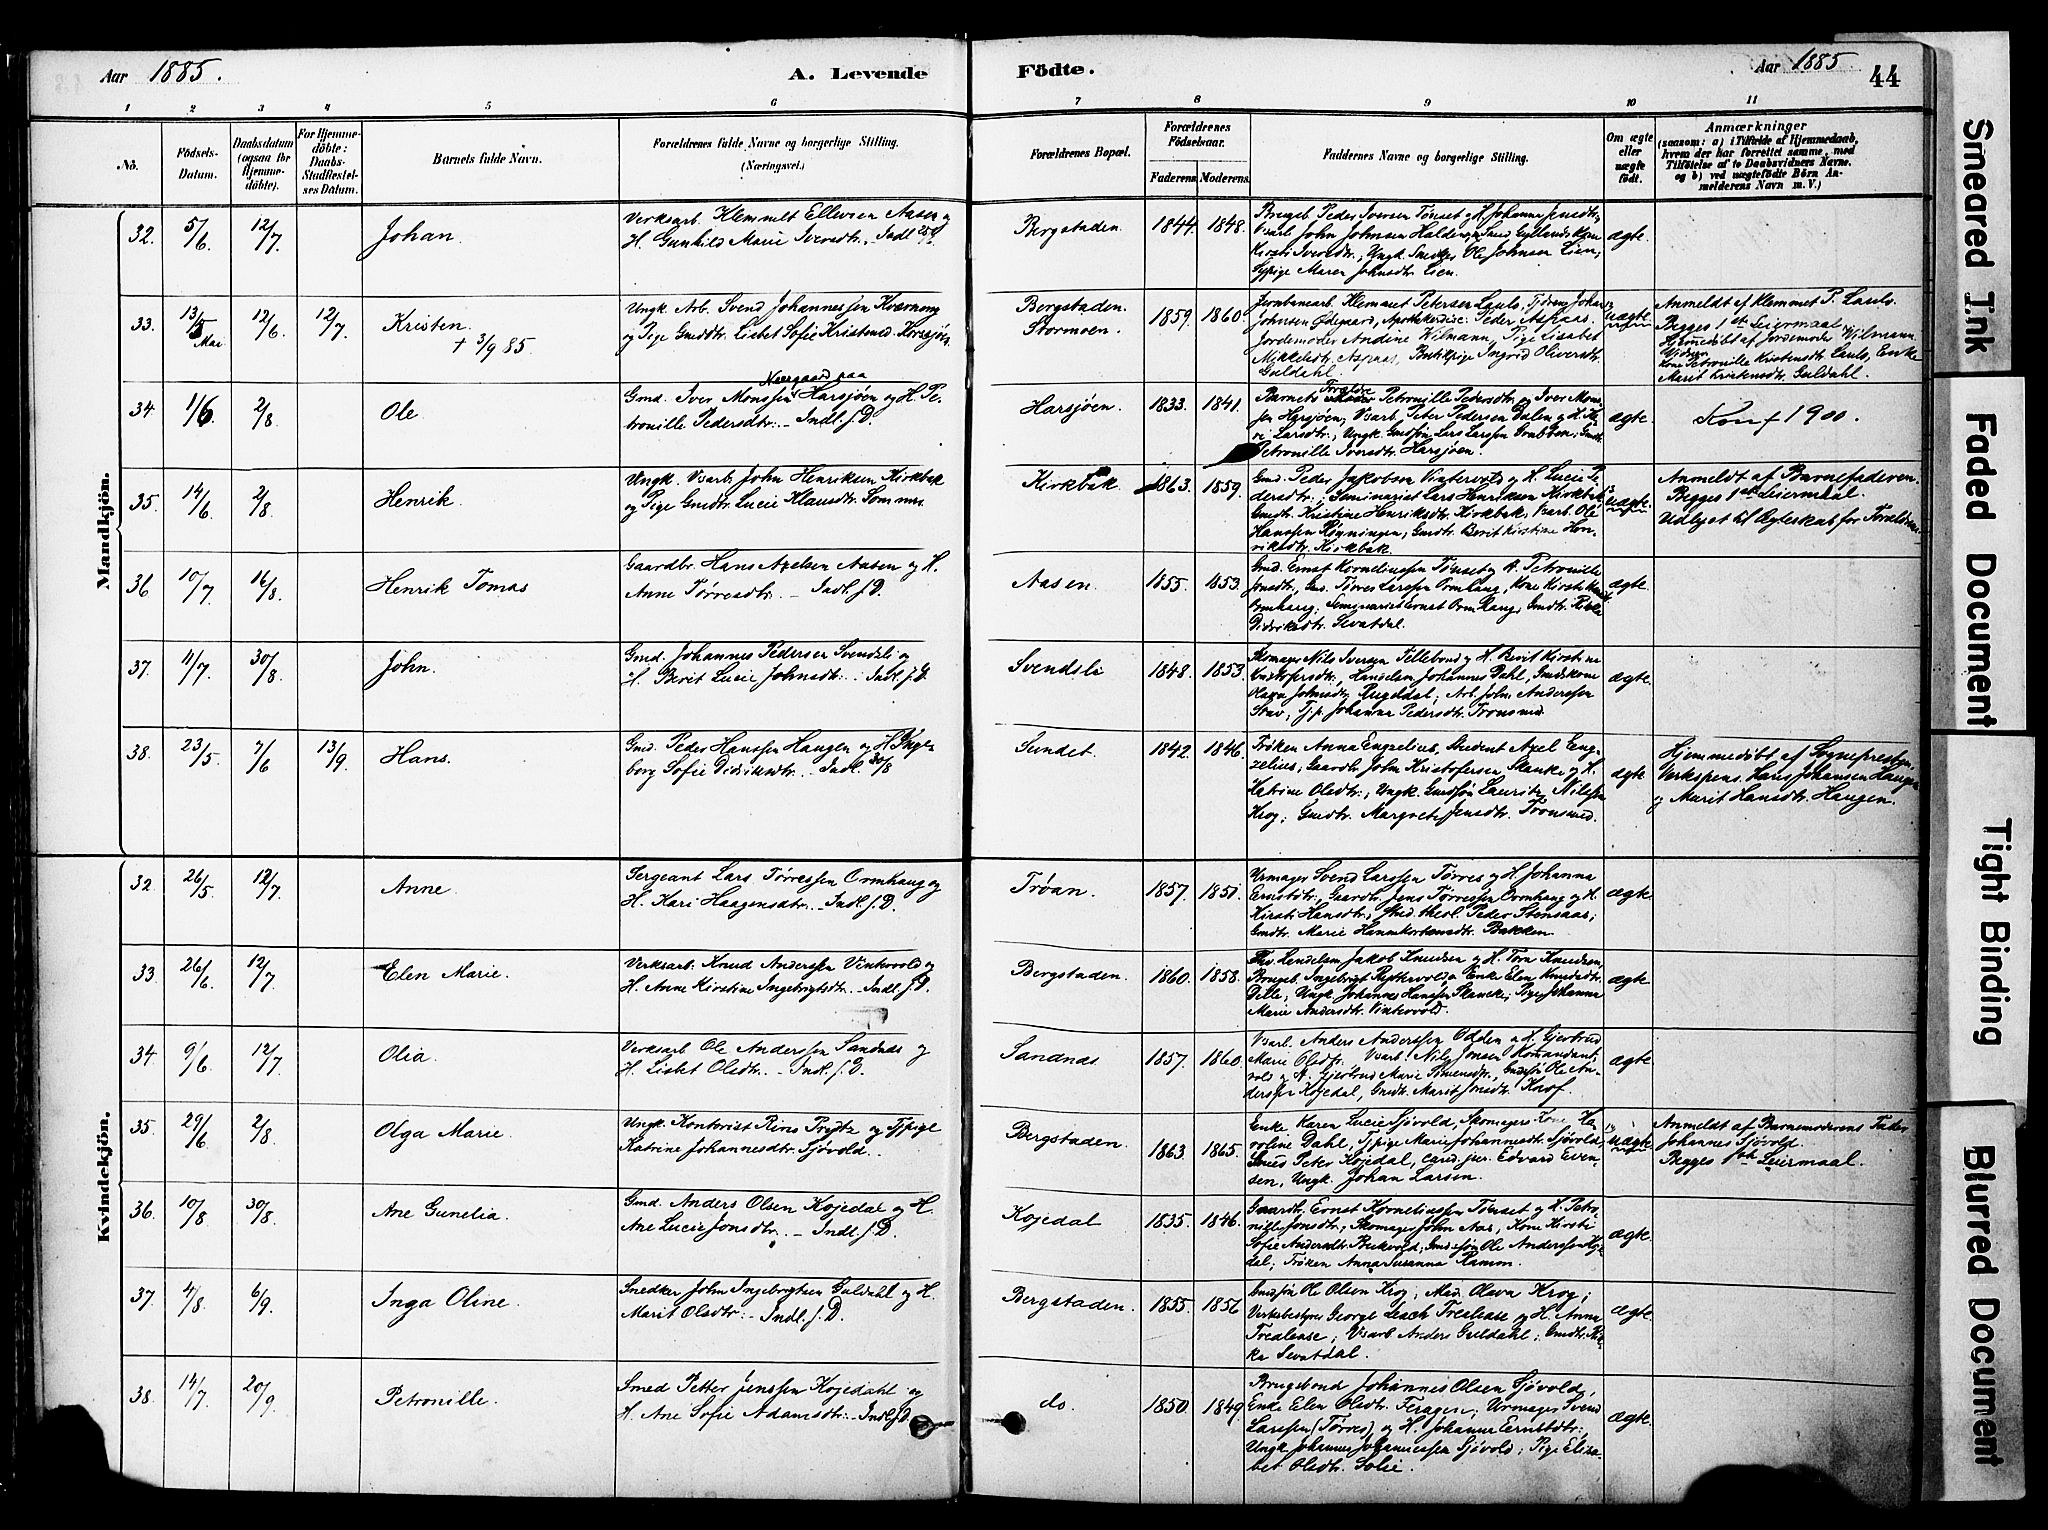 Aar 1885.
A. Levende
Födte.
Aar 1885
44
1 2 3 4 5 6 7 8 9 10 11
No.
Födsels-Datum.
Daabsdatum (ogsaa for Hjemme-döbte).
For Hjemme-döbte: Daabs-Stadfæstel-ses Datum.
Barnets fulde Navn.
Forældrenes fulde Navne og borgerlige Stilling.
(Næringsvei.)
Forældrenes Bopæl.
Forældrenes Födselsaar.
Faderens Moderens
Faddernes Navne og borgerlige Stilling.
Om ægte eller uægte födt.
Anmærkninger
(saasom: a) i Tilfælde af Hjemmedaab,
hvem der har forrettet samme, med
Tilföielse af to Daabsvidners Navne.
og b) ved uægtefödte Börn An-
melderens Navn m. V.)
Mandkjön.
32. 5/6 12/7 Johan.
Verksarb. Klemmet Ellevsen Aasen og
H. Gunhild Marie Iversdtr.
Bergstaden 1844. 1848.
Brugsb. Peder Iversen Tönset og H. Johanna Jensdtr.
Kirsti Iversdtr., Ungk. Snedker Ole Johnsen Lien;
Sypige Maren Johnsdtr. Lien.
ægte.
33. 13/5 Mai 12/6 12/7 Kristen.
+ 3/9 85.
Ungk. Arb. Svend Johannessen Kværnong
og Pige Gmdtr. Lisbet Sofie Kristensd. Horssjöen
Bergstaden.
Stormoen. 1859. 1860.
Jernbanearb. Klemmet Petersen Lauls,
Johnsen Ödegaard, Peder Aspaas,
Jordemoder Andine Wilmann, Pige Lisabet
Mikkelsdtr. Aspaas, Butikpige Ingrid Oliversdtr.
Guldahl.
uægte
Anmeldt af Klemmet P. Lauls.
Begges 1ste Leiermaal.
Hjemmedöbt af Jordemoder Wilmann.
Kone Petronille Kristensdtr. Lauls, Enke
Marit Kristensdtr. Guldahl.
34 1/6 2/8 Ole
Neergaard paa
Gmd. Iver Monssen Harsjöen og H. Pe-
tronille Pedersdtr. - Indl. f. D.
Harsjöen. 1833. 1841.
Barnets Forældre Petronille Pedersdtr og Iver Mons-
sen Harsjöen; Vsarb. Peter Pedersen Dalen og H.
Larsdtr.; Ungk. Gmdsön Lars Larssen
Petronille Iversdtr. Harsjöen.
ægte.
Konf 1900.
35. 14/6 2/8 Henrik
Ungk. Vsarb. John Henriksen Kirkbak
og Pige Gmdtr. Lucie Klausdtr.
Kirkbak 1863. 1859.
Gmd. Peder Jakobsen Vintervold og H. Lucie Pe-
dersdtr.; Seminarist Lars Henriksen Kirkbak,
Gmdtr. Kristine Henriksdtr. Kirkbak, Vsarb. Ole
Hanssen Rögningen, Gmdtr. Berit Kirstine Hen-
riksdtr. Kirkbak
uægte
Anmeldt af Barnefaderen.
Begges 1ste Leiermaal.
Udlyst til Ægteskab for Forældrene.
36 10/7 16/8 Henrik Tomas
Gaardbr. Hans Axelsen Aasen og H.
Anne Törresdtr. - Indl. f. D.
Aasen. 1855. 1853.
Gmd. Ernst Korneliussen Tönset og H. Petronille
Jonsdtr., Törres Larssen Ormhaug, Kone Kirsti
Ormhaug; Seminarist Ernst Ormhaug, Gmdtr.
Didriksdtr. Sevatdal.
ægte
37. 4/7 30/8 John.
Gmd. Johannes Pedersen Svendsli og
H. Berit Lucie Johnsdtr. Indl. f. D.
Svendsli 1848. 1853.
Skomager Nils Iversen Fillebond og H. Berit Kirstine
Kristofersdtr., Handelsm. Johannes Dahl, Gmdskone
Johnsdtr. Rugeldal; Arb. John Anderssen
Stav, Tj.p. Johanna Pedersdtr. Tronsmed.
ægte
38. 23/5 7/6 13/9 Hans.
Gmd. Peder Hanssen Haugen og H. Inge-
borg Sofie Didriksdtr. - Indl. 30/8
Sundet. 1842. 1846.
Fröken Anna Engzelius, Student Axel Eng-
zelius; Gaardb. John Kristofersen Skanke og H.
Katrine Olsdtr.; Ungk. Gmdsön Lauritz Nilssen
Krog; Gmdtr. Margrete Jensdtr. Tronsmed.
ægte
Hjemmedöbt af Sognepresten.
Verkspens. Hans Johansen Haugen
og Marit Hansdtr. Haugen.
Kvindekjön.
32. 26/5 12/7 Anne.
Sergeant Lars Törressen Ormhaug og
H. Kari Haagensdtr. - Indl. f. D.
Tröan. 1857. 1851.
Urmager Svend Larssen Törres og H. Johanna
Ernstdtr., Gaardb. Jens Törressen Ormhaug og H.
Kirsti Hansdtr.; Stud. theol. Peder Stensaas;
Gmdtr. Marie Bakken
ægte.
33. 26/6 12/7 Elen Marie.
Verksarb. Knud Anderssen Vintervold og
H. Anne Kirstine Ingebrigtsdtr. - Indl. f. D.
Bergstaden. 1860. 1858.
Handelsm. Jakob Knudsen og H. Törn Knudsen,
Brugsb. Ingebrigt Rytterwold, Enke Elen Knudsdtr.
Dille, Ungk. Johannes Hanssen Skancke; Pige Johanna
Marie Andersdtr. Vintervold.
ægte
34 9/6 12/7 Olia.
Verksarb Ole Anderssen Sandnæs og
H. Lisbet Olsdtr. - Indl. f. D.
Sandnæs 1857. 1860.
Vsarb. Anders Anderssen Odden og H. Gjertrud
Marie Olsdtr., Vsarb. Nils Jonsen Komandant-
vold og H. Gjertrud Marie Simensdtr., Gmdsön Ole An-
derssen Kojedal, Gmdtr. Marit Jonsdtr. Knof.
ægte
35. 29/6 2/8 Olga Marie.
Ungk. Kontorist Rins Prytz og Tjpige
Katrine Johannesdtr. Sjövold.
Bergstaden. 1863. 1865.
Enke Karen Lucie Sjövold, Skomagers Kone Ka-
roline Dahl, Tjpige Marie Johannesdtr. Sjövold,
Smed Peter Kojedal, cand. jur. Edvard Even-
sen, Ungk. Johan Larsen.
uægte
Anmeldt af Barnemoderens Fader
Johannes Sjövold.
Begges 1ste Leiermaal.
36. 10/8 30/8 Ane Gunelia.
Gmd. Anders Olsen Kojedal og H.
Ane Lucie Jonsdtr. - Indl. f. D.
Kojedal 1835. 1846.
Gaardb. Ernst Korneliussen Tönset og H. Petro-
nille Jonsdtr.; Skomager John Aas, Kone Kirsti
Sofie Andersdtr. Bukvold; Gmdsön Ole Anderssen Koje-
dal; Fröken Anna Susanna Ramm.
ægte.
37. 4/8 6/9 Inga Oline.
Snedker John Ingebrigtsen Guldahl og H.
Marit Olsdtr: - Indl. f. D.
Bergstaden. 1855. 1856
Gmdsön Ole Olsen Krog; Mad. Olava Krog;
Verksbestyrer George Leach Trealease og H. Anna
Trealease; Vsarb. Anders Guldahl; Gmdtr. Rik-
ka Sevatdal.
ægte.
38 14/7 20/9 Petronille.
Smed Petter Jenssen Kojedahl og
H. Ane Sofie Adamsdtr: - Indl. f. D.
do. 1850. 1849.
Brugsbond Johannes Olsen Sjövold,
Enke Elen Olsdtr. Feragen; Urmager Svend
Larssen (Törres) og H. Johanna Ernstdtr.;
Ungk. Johannes Johannessen Sjövold; Pige Elisa-
bet Olsdtr. Solie.
ægte.
Smeared Ink
Faded Document
Tight Binding
Blurred Document